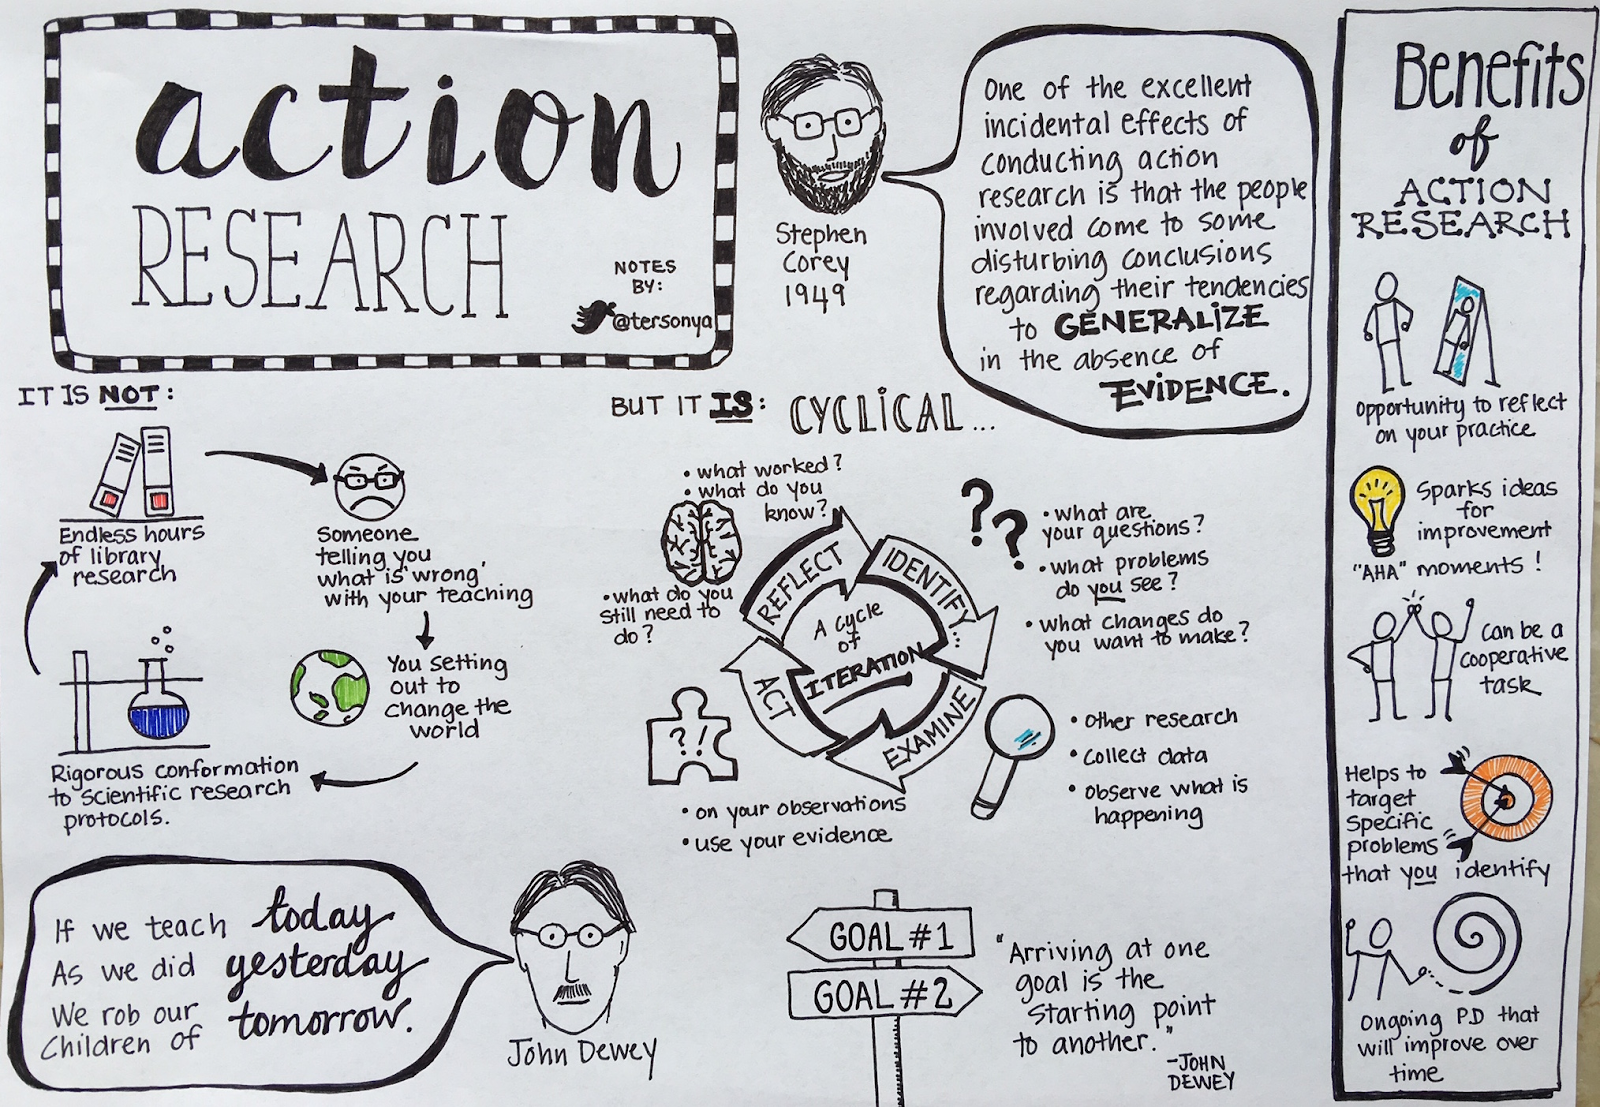 action
RESEARCH
NOTES
BY:
@tersonya
Stephen
Corey
1949
One of the excellent
incidental effects of
conducting action
research is that the people
involved come to some
disturbing conclusions
regarding their tendencies
to GENERALIZE
in the absence of
EVIDENCE.
IT IS NOT:
Endless hours
of library
research
Someone
telling you
what is 'wrong'
with your teaching
You setting
out to
change the
world
Rigorous conformation
to scientific research
protocols.
BUT IT IS: CYCLICAL...
• what worked?
• what do you
know?
• what do you
still need to
do?
REFLECT
IDENTIFY...
EXAMINE
ACT
A cycle
of
ITERATION
• what are
your questions?
• what problems
do you see?
• what changes do
you want to make?
• other research
• collect data
• observe what is
happening
?!
• on your observations
• use your evidence
If we teach today
As we did yesterday
We rob our
Children of tomorrow.
John Dewey
GOAL #1
GOAL #2
"Arriving at one
goal is the
starting point
to another."
-JOHN
DEWEY
Benefits
of
ACTION
RESEARCH
opportunity to reflect
on your practice
Sparks ideas
for
improvement
"AHA" moments!
Can be a
cooperative
task
Helps to
target
specific
problems
that you identify
Ongoing PD that
will improve over
time